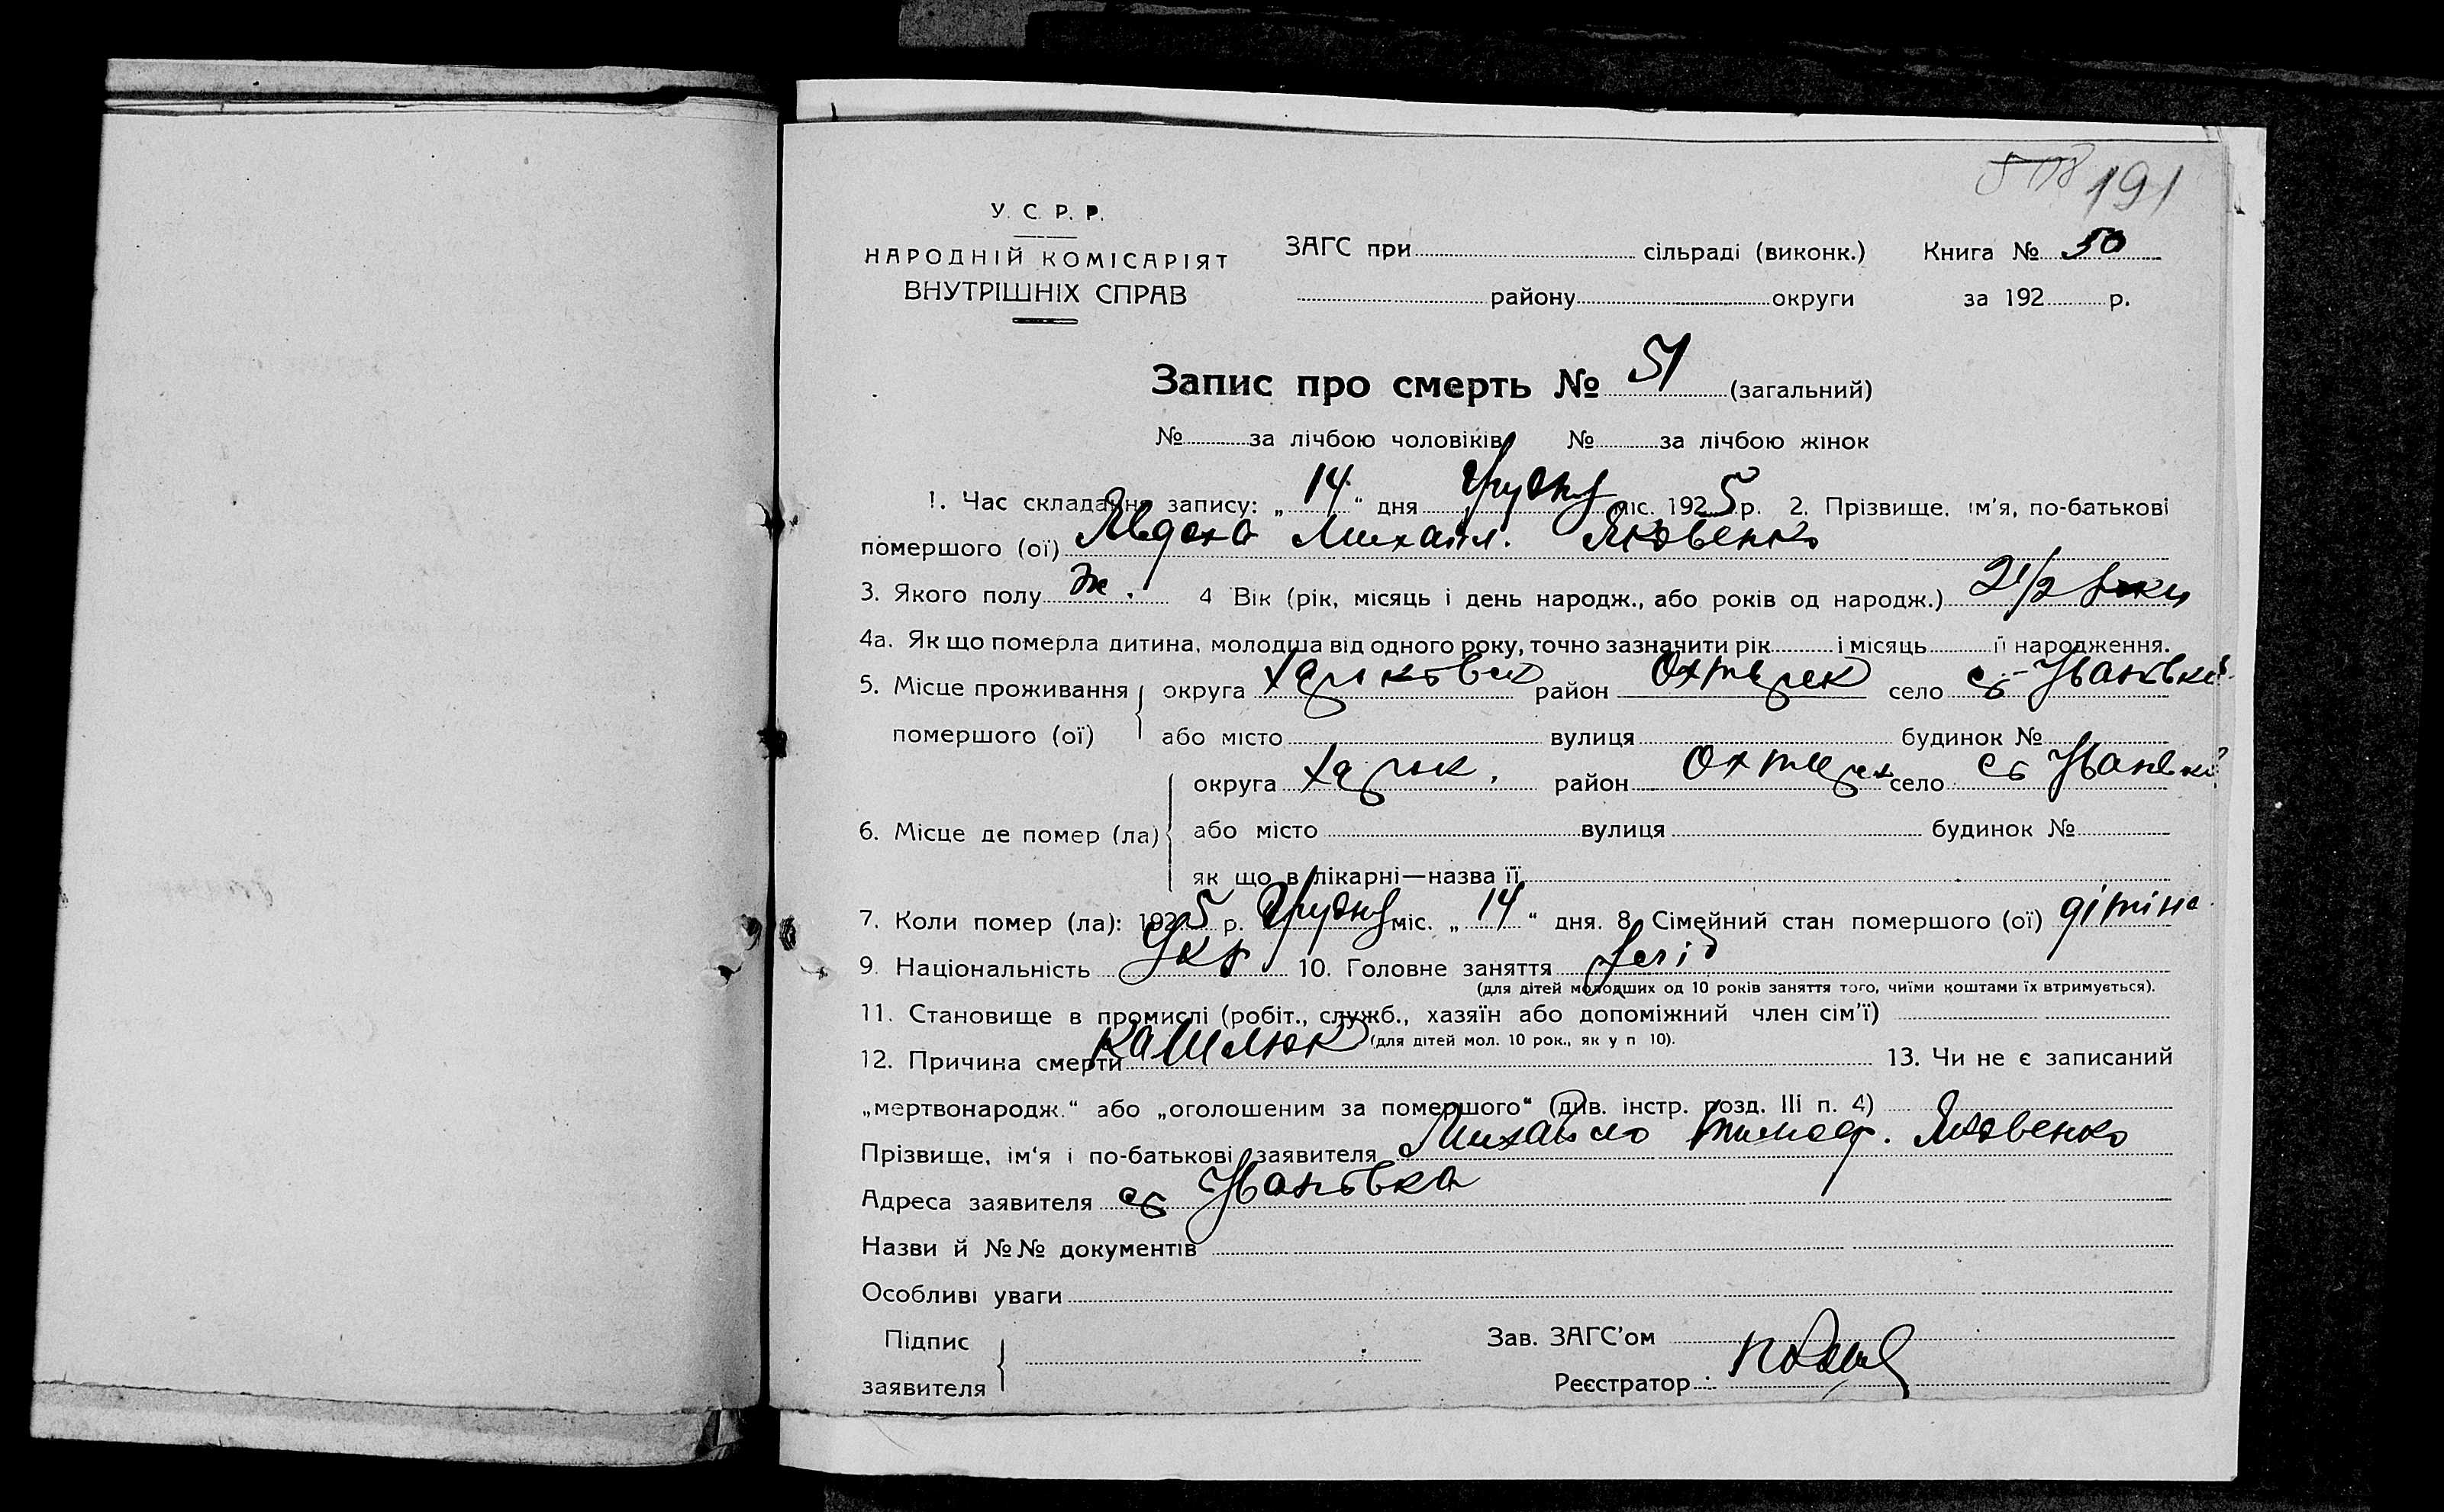 191
У. С. Р. Р.
НАРОДНІЙ КОМІСАРІЯТ
ВНУТРІШНІХ СПРАВ
ЗАГС при сільраді (виконк.) Книга № 50
району округи за 192 р.
Запис про смерть № 51 (загальний)
№ за лічбою чоловіків № за лічбою жінок
1. Час складання запису: „ 14 “ дня Грудня міс. 1925 р. 2. Прізвище, ім'я, по-батькові
помершого (ої) Явдоха Михайл. Яковенко
3. Якого полу ж. 4 Вік (рік, місяць і день народж., або років од народж.) 2 1/2
4а. Як що померла дитина, молодша від одного року, точно зазначити рік і місяць її народження.
5. Місце проживання помершого (ої) округа район Охтирск село с Ивановка
або місто вулиця будинок №
6. Місце де помер (ла) округа Харьк. район Охтирск село с
або місто вулиця будинок №
як що в лікарні—назва її
7. Коли помер (ла): 1925 р. Грудня міс. „ 14 “ дня. 8. Сімейний стан помершого (ої) дітіна
9. Національність Укр 10. Головне заняття
(для дітей молодших од 10 років заняття того, чиїми коштами їх втримується).
11. Становище в промислі (робіт., служб., хазяїн або допоміжний член сім'ї)
(для дітей мол. 10 рок., як у п 10).
12. Причина смерти кашлюк 13. Чи не є записаний
„мертвонародж.“ або „оголошеним за помершого“ (див. інстр. розд. III п. 4)
Прізвище, ім'я і по-батькові заявителя Михайло Тимоф. Яковенко
Адреса заявителя с Ивановка
Назви й №№ документів
Особливі уваги
Підпис заявителя
Зав. ЗАГС'ом
Реєстратор